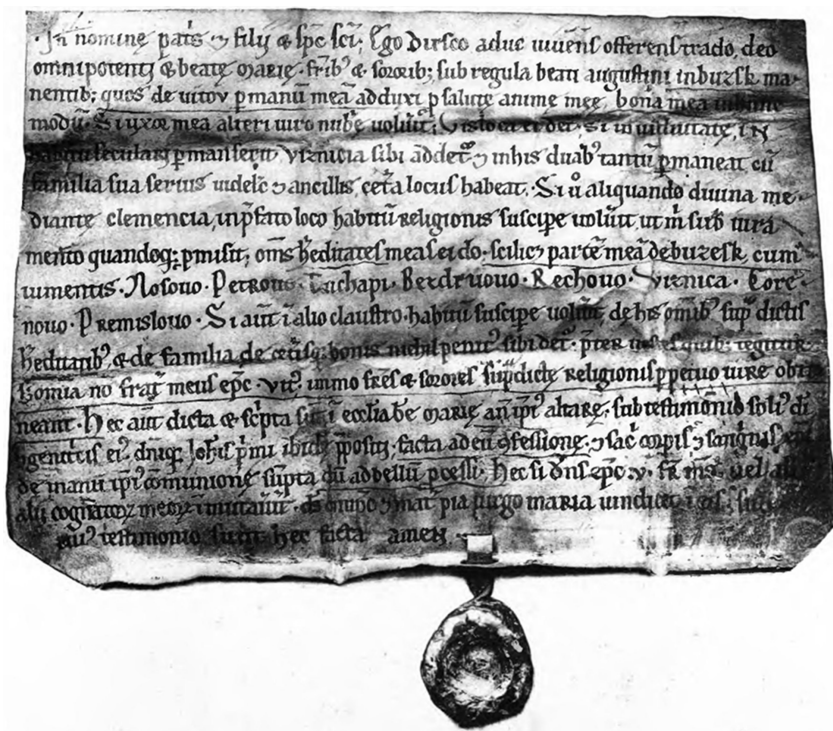 In nomine pat̃s ⁊ filij & sp̃c sc̃i; Ego Dirsco aduc uiuens offerens trado, deo
omnipotenti & beate marie · fr̃ib⁹ & sororib; sub regula beati augustini in buzesk ma-
nentib; quos de uitov p̱ manū meā adduxi p̱ salute anime mee, bona mea
modū. Si uxor mea alteri uiro nub̃e uoluit̃; Si in uiduitate, in
seculari p̱manserit, vsnicia sibi addet̃ ⁊ in his duab⁹ tantū p̱maneat cū
familia sua seruis uidelic̃ ⁊ ancillis, cet̃a locus habeat. Si ů aliquando diuina me-
diante clemencia, in p̃fato loco habitū religionis suscipe uoluit̃, ut m̃ sub iura
mento quandoq; p̱misit, om̃s h̃editates meas ei do; scilic̃ partē meā de buzesk, cum
iumentis · Nosovo · Petrovo · Tuchapi · Berdruovo · Rechovo · vsnica · Tore-
novo · Premislovo · Si aut̃ ĩ alio claustro habitū suscipe uoluit̃, de his om̃ib⁹ sup̃ dictis
h̃editatib⁹, & de familia, de cet̃isq; bonis nichil penit⁹ sibi det̃ · p̃ter uestes quib; tegitur
Somia no frat̃ meus ep̃c · vit⁹ immo fr̃es & sorores sup̃ dicte religionis p̱petuo iure obti-
neant · Hec aut̃ dicta & sc̃pta sūt ĩ eccl̃ia be marie añ ip̃i⁹ altare, sub testimonio
ei⁹ dñiq; Joh̃is p̃mi ibidē p̃positi, facta ad eū ꝯfessione, ⁊ sac̃ corp̱is ⁊ sanginis
de manu ip̃i⁹ cōmunione sūpta cū ad bellū p̃cessi · Hec si dñs ep̃c · v · fr̃ ms̃ uel
alij cognatorꝝ meorꝝ ĩmutau̾it · d̃s ⁊ mat̃ pia uirgo maria uindicet
testimonio sunt hec facta amen ·